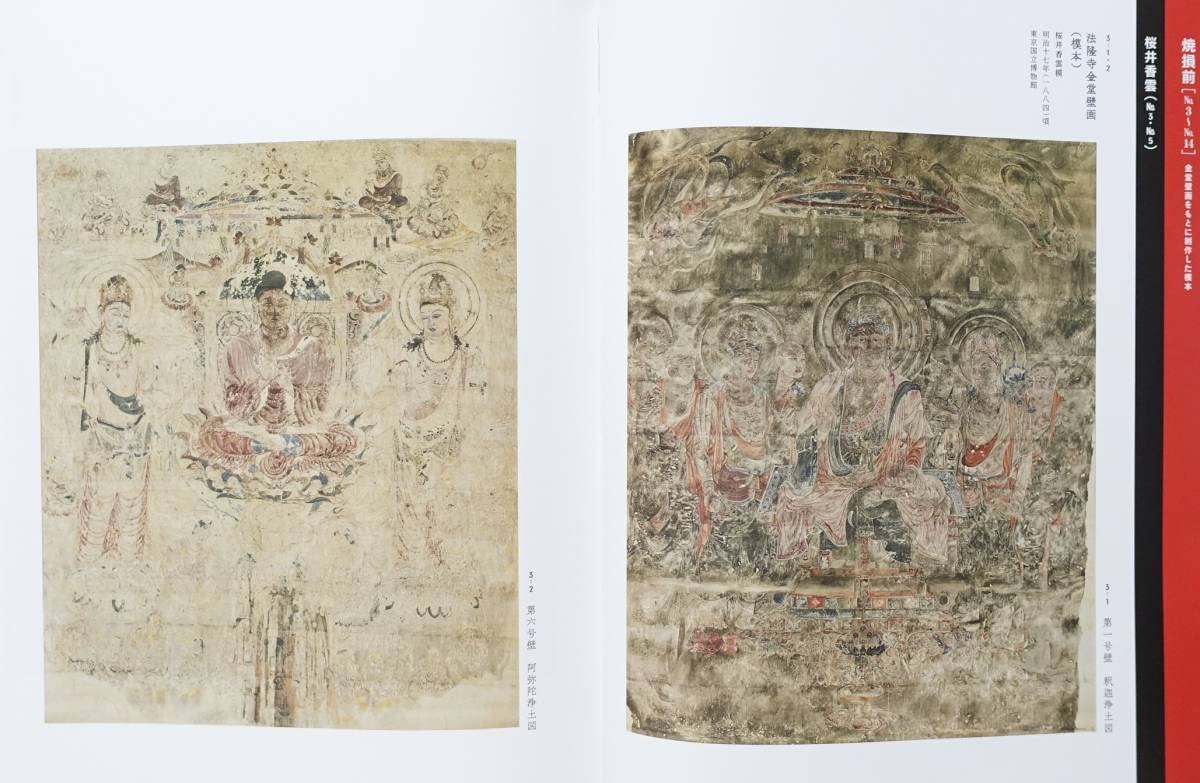 焼損前[№3〜№14] 金堂壁画をもとに制作した模本
桜井香雲(№3・№5)
3-1・2
法隆寺金堂壁画
(模本)
桜井香雲模
明治十七年(一八八四)頃
東京国立博物館
3-1 第一号壁 釈迦浄土図
3-2 第六号壁 阿弥陀浄土図